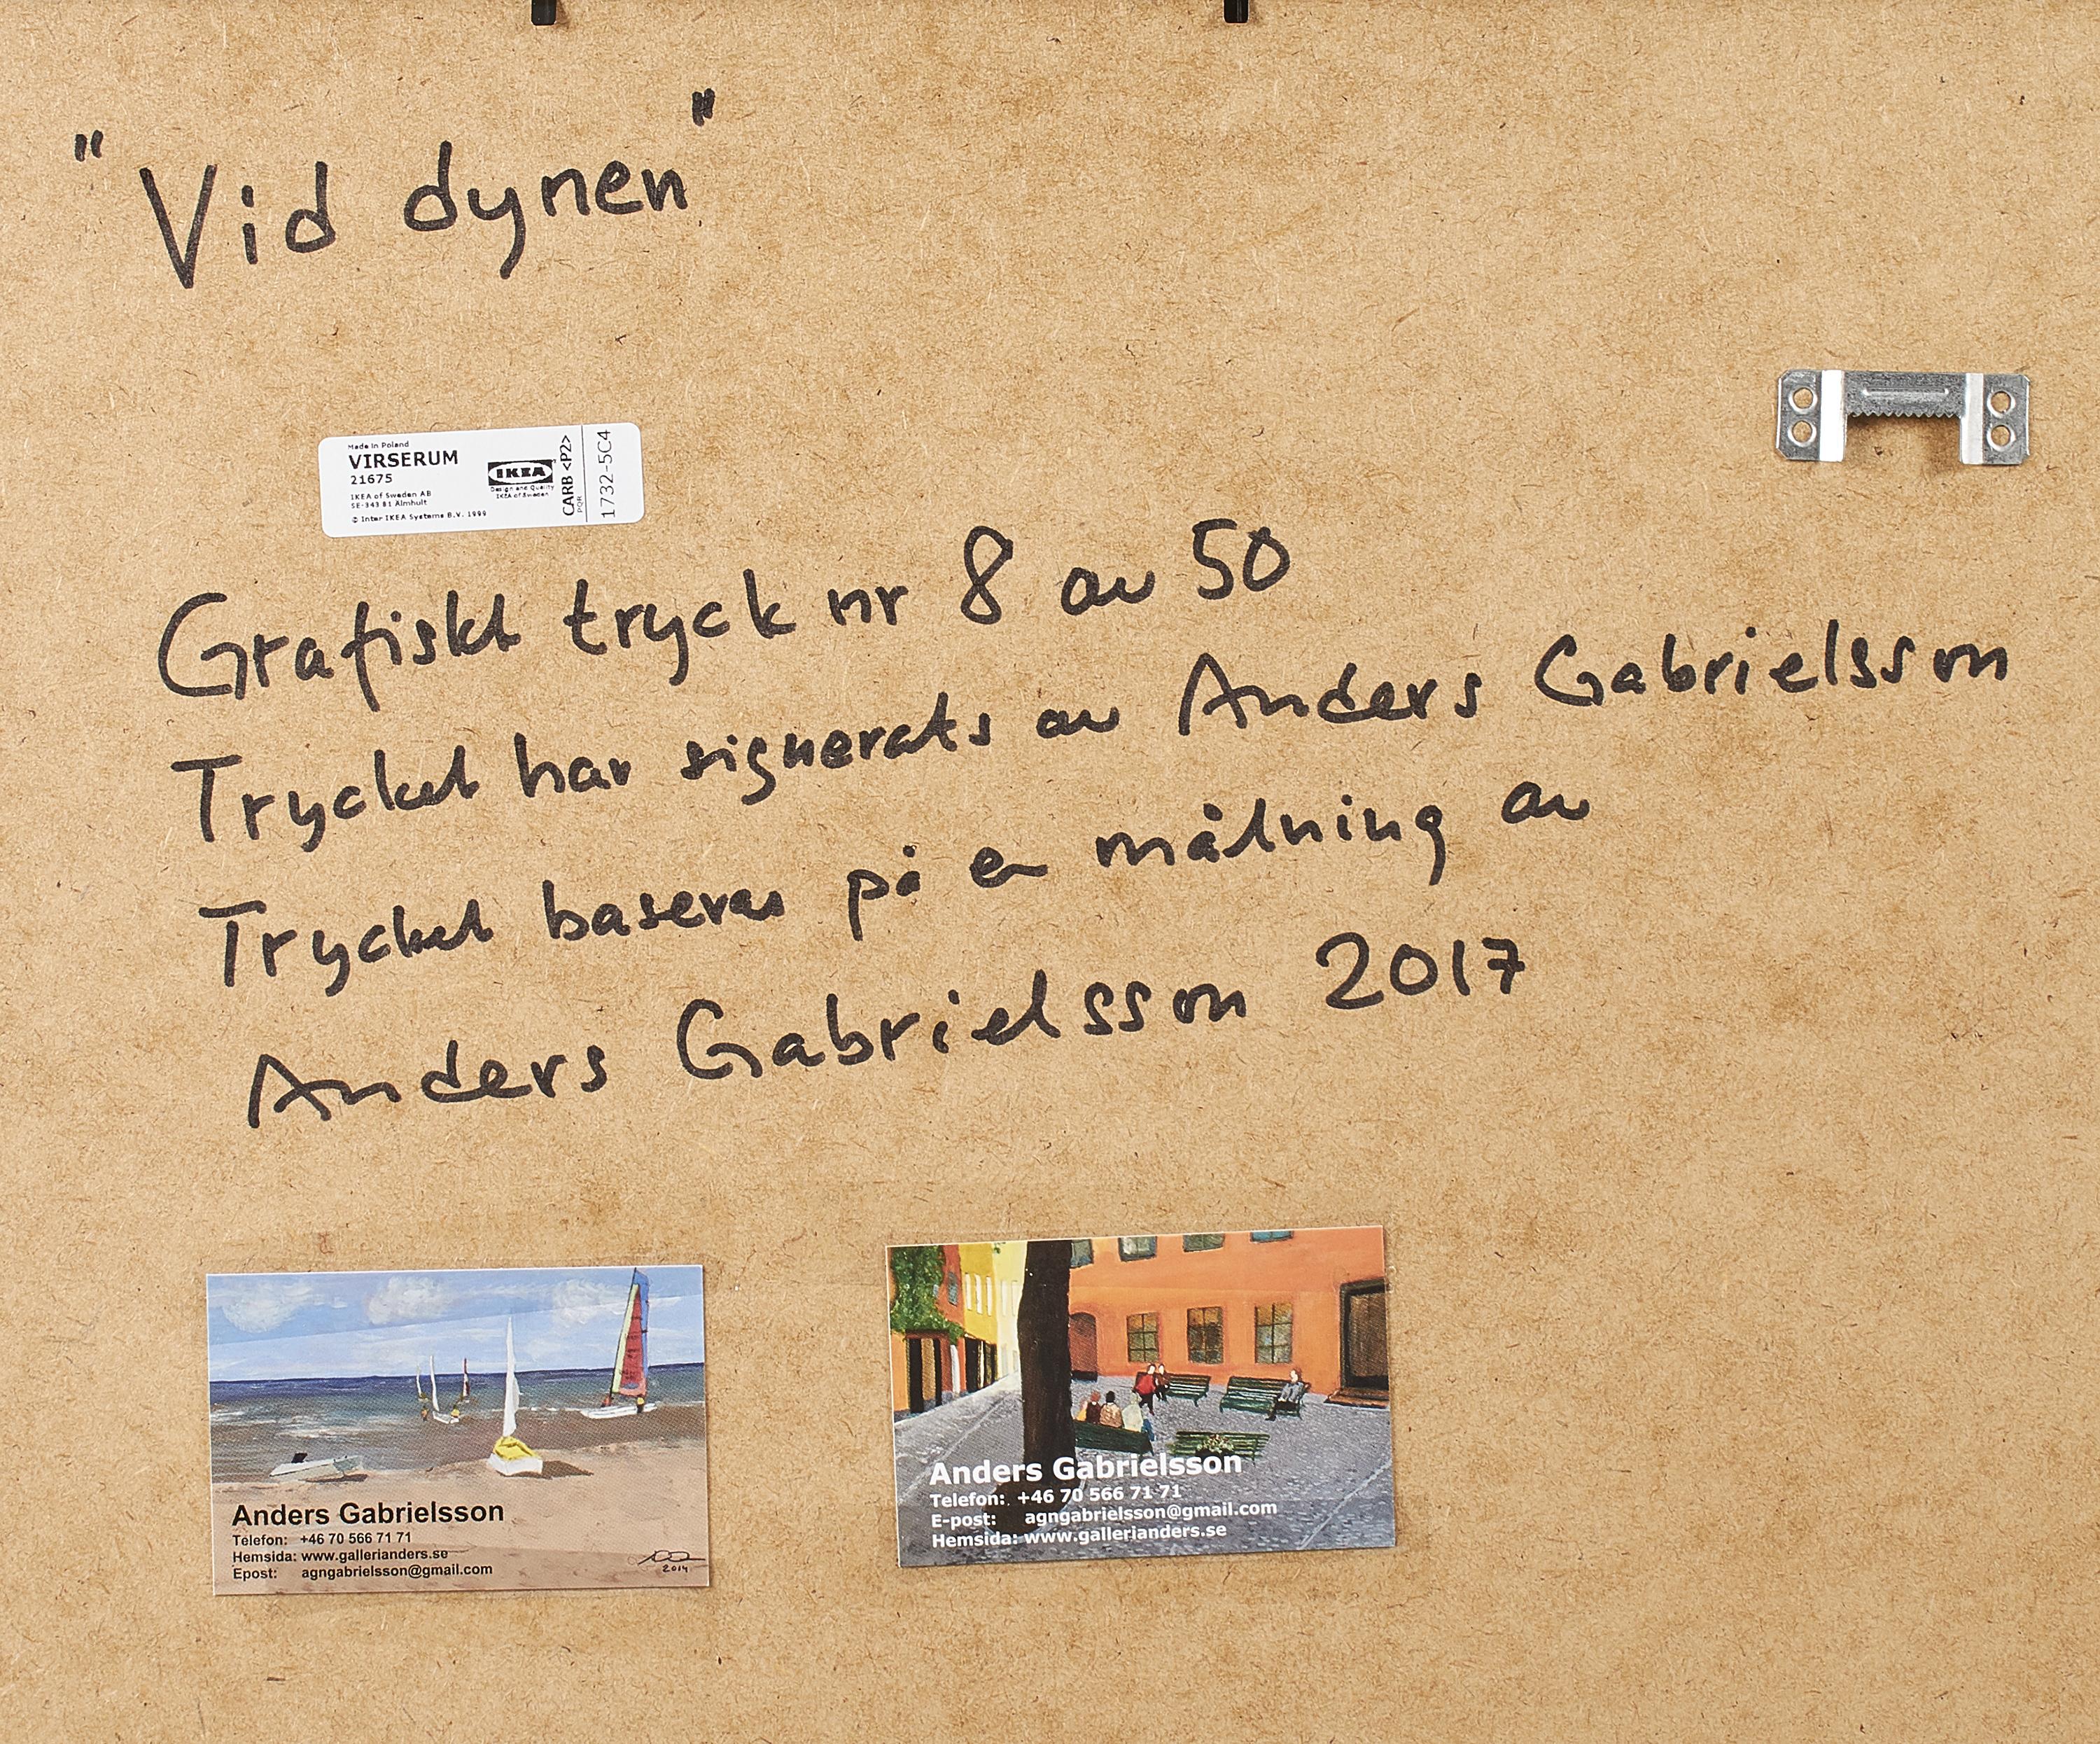 "Vid dynen"
Made in Poland
VIRSERUM
21675
IKEA of Sweden AB
SE-343 81 Älmhult
© Inter IKEA Systems B.V. 1999
IKEA
Design and Quality
IKEA of Sweden
CARB <P2>
PQR
1732-5C4
Grafiskt tryck nr 8 av 50
Trycket har signerats av Anders Gabrielsson
Trycket baseras på en målning av
Anders Gabrielsson 2017
Anders Gabrielsson
Telefon: +46 70 566 71 71
Hemsida: www.gallerianders.se
Epost: agngabrielsson@gmail.com
2014
Anders Gabrielsson
Telefon: +46 70 566 71 71
E-post: agngabrielsson@gmail.com
Hemsida: www.gallerianders.se